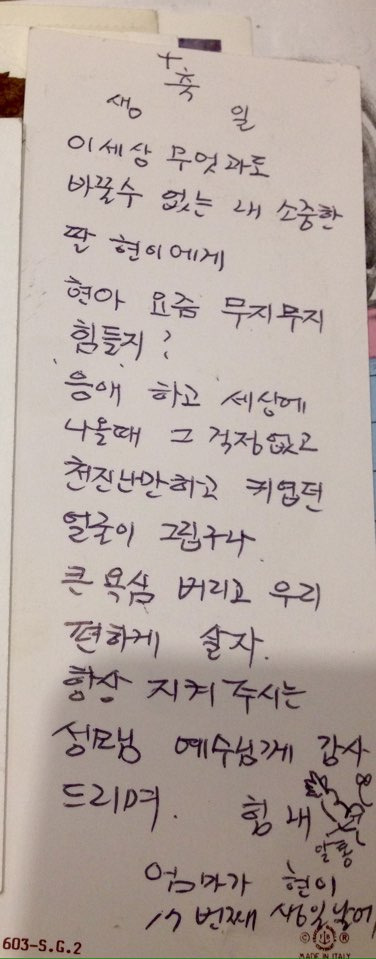 +
축
생 일
이세상 무엇과도
바꿀수 없는 내 소중한
딸 현이에게
현아 요즘 무지무지
힘들지?
응애 하고 세상에
나올때 그 걱정없고
천진난만하고 귀엽던
얼굴이 그립구나
큰 욕심 버리고 우리
편하게 살자.
항상 지켜 주시는
성모님 예수님께 감사
드리며. 힘내
알롱
엄마가 현이
17번째 생일날에
603-S.G.2
MADE IN ITALY